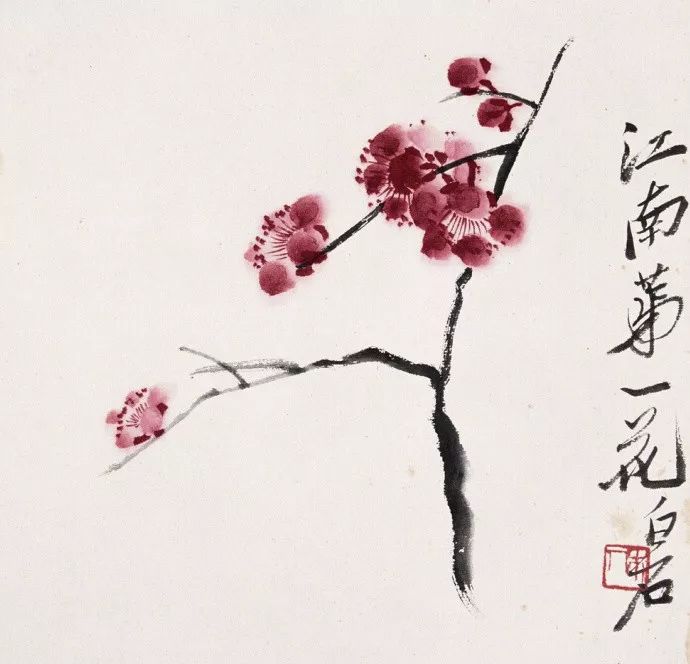 江南第一花 白石